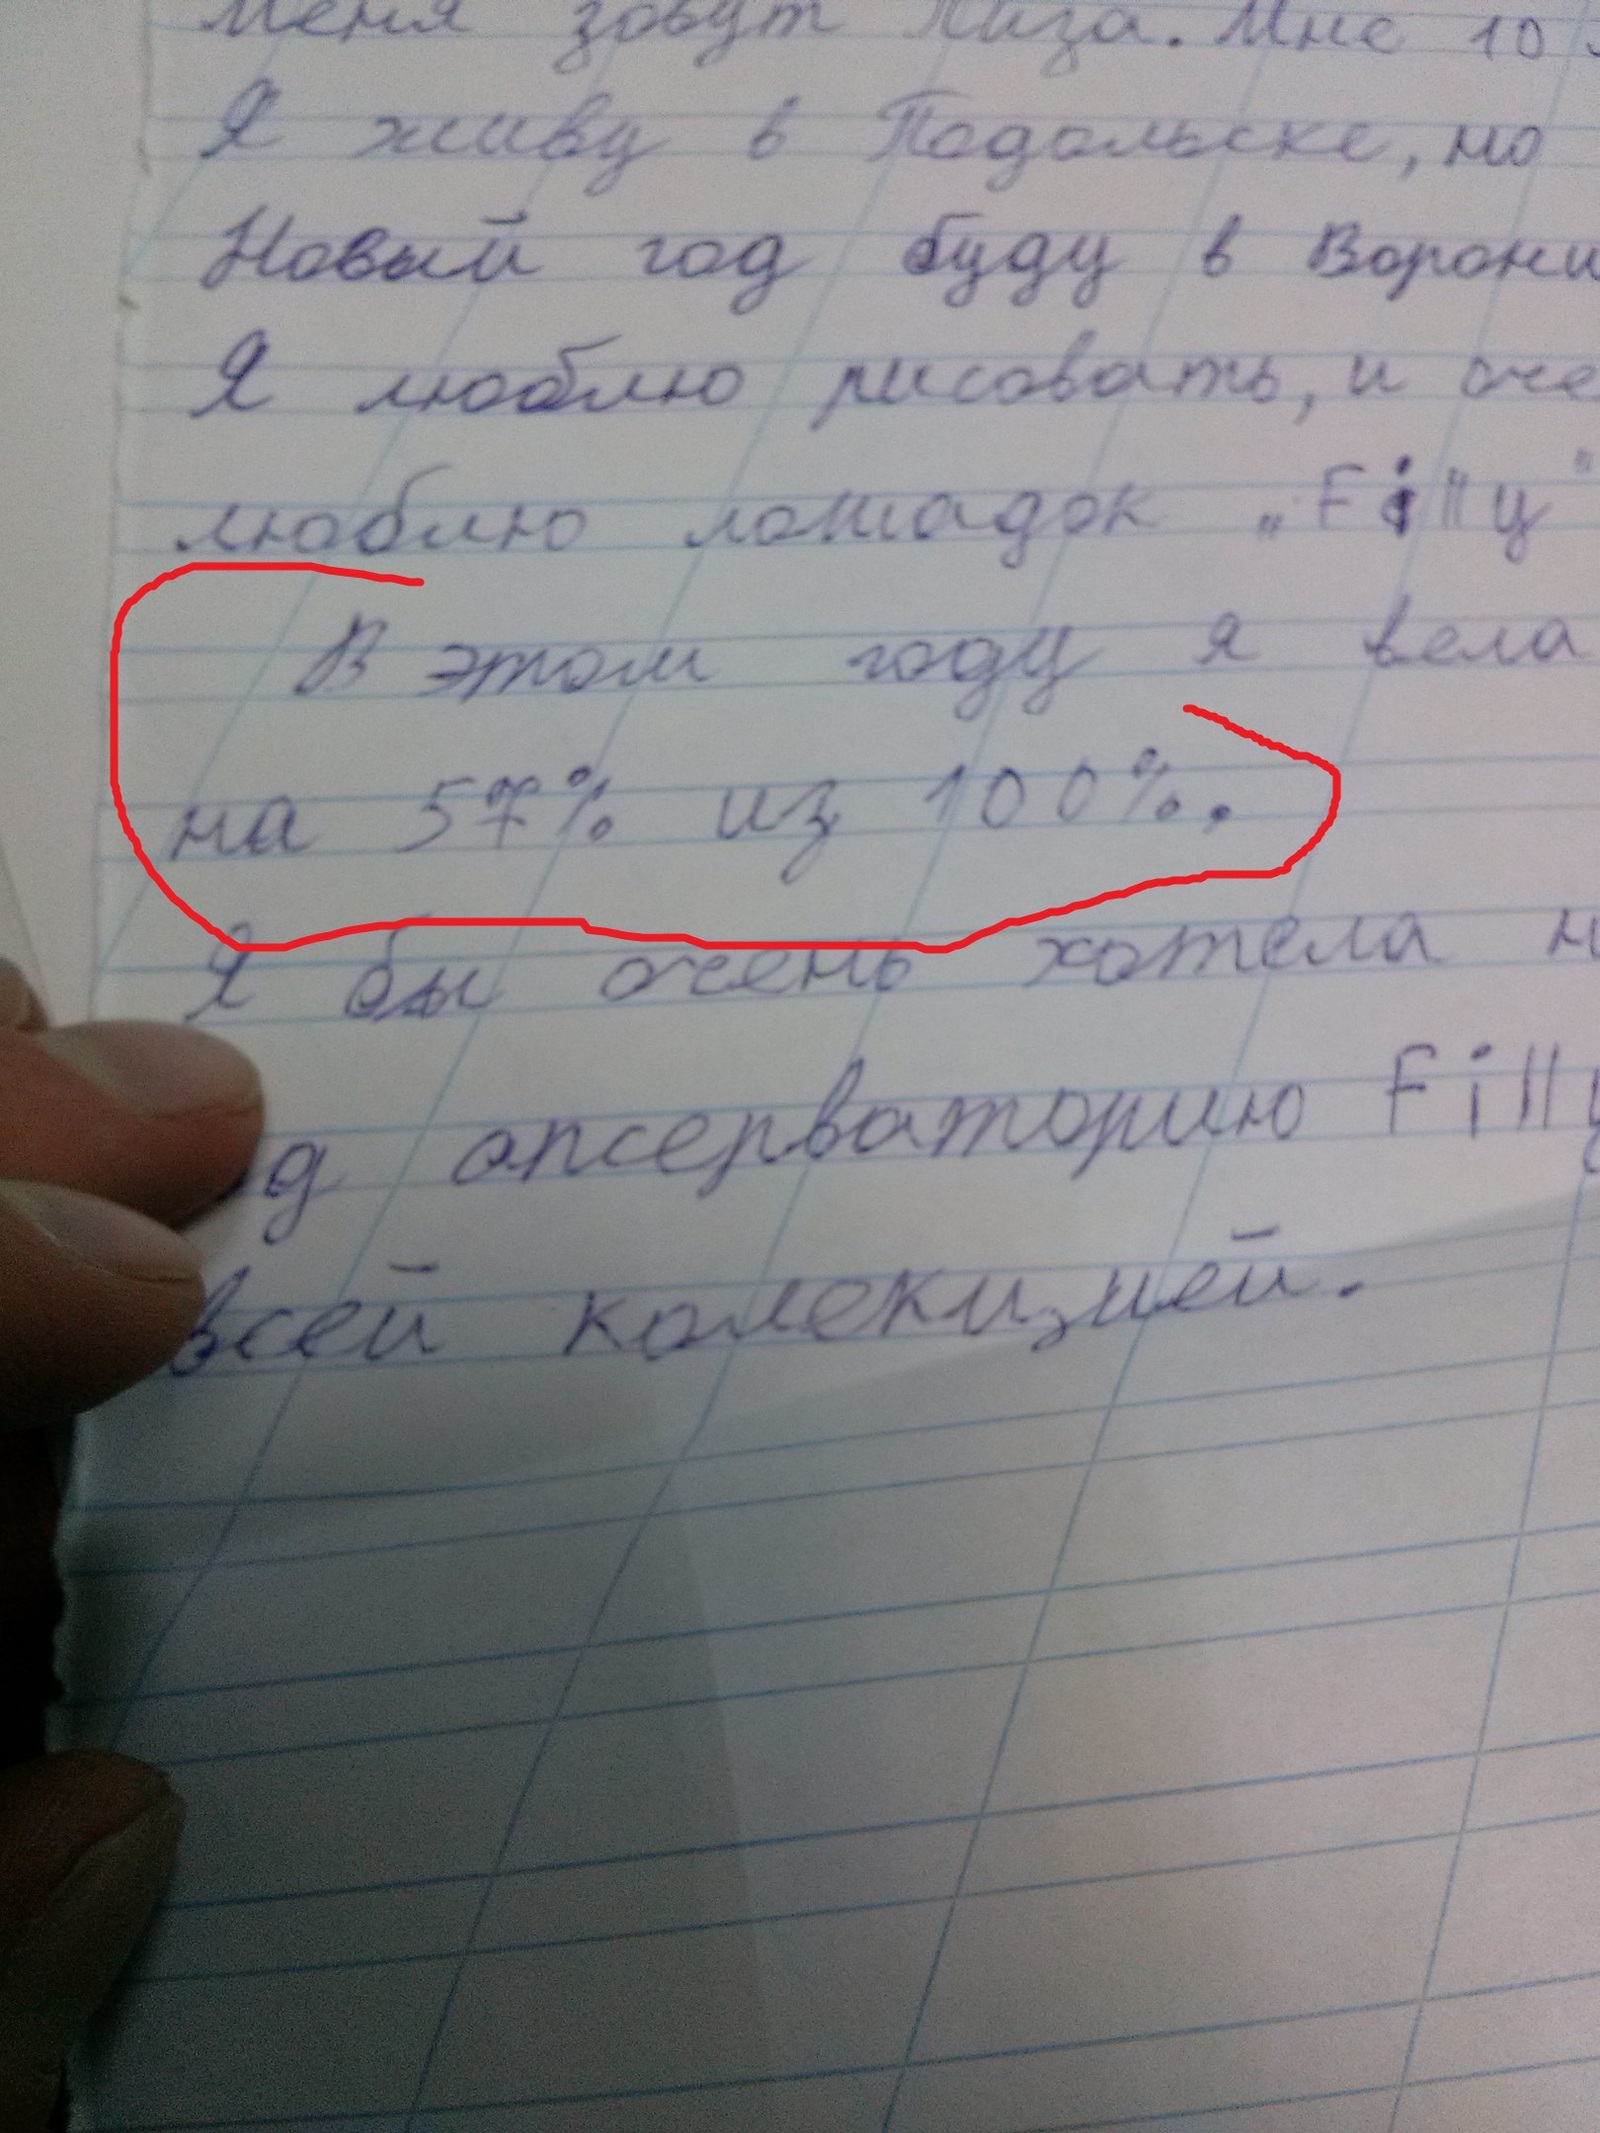 Меня зовут Лиза. Мне 10
Я живу в Подольске, но
Новый год буду в
Я люблю рисовать, и
люблю лошадок „Filly"
В этом году я вела
на 57% из 100%.
Я бы очень хотела
апсерваторию Filly
всей колекцией.